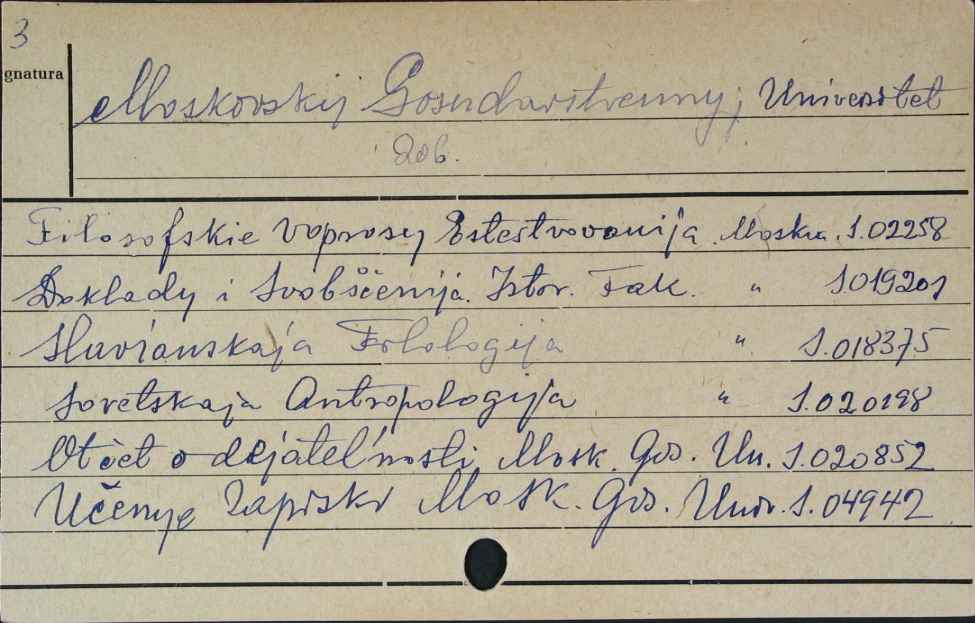 3
gnatura
Moskovskij Gosudarstvennyj Universitet
Filosofskie Voprosy Estestvovanija. Moskva. S.02258
Doklady i Soobščenija. Istor. Fak. " S.019201
Slavianskaja Filologija " S.018375
Sovetskaja Antropologija " S.020198
Otčet o dejatel'nosti Mosk. Gos. Un. S.020852
Učenye Zapiski Mosk. Gos. Univ. S.04942